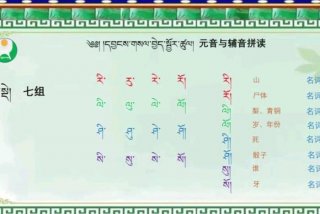 ༄༅། །དབྱངས་གསལ་བྱེད་སྦྱོར་ཚུལ། 元音与辅音拼读
སྡེ། 七组
རི་ རུ་ རེ་ རོ།
ལི་ ལུ་ ལེ་ ལོ།
ཤི་ ཤུ་ ཤེ་ ཤོ།
སི་ སུ་ སེ་ སོ།
རི། 山 名词
རོ། 尸体 名词
ལི། 梨、青铜 名词
ལོ། 岁、年份 名词
ཤི 死
ཤོ། 骰子 名词
སུ། 谁
སོ། 牙 名词